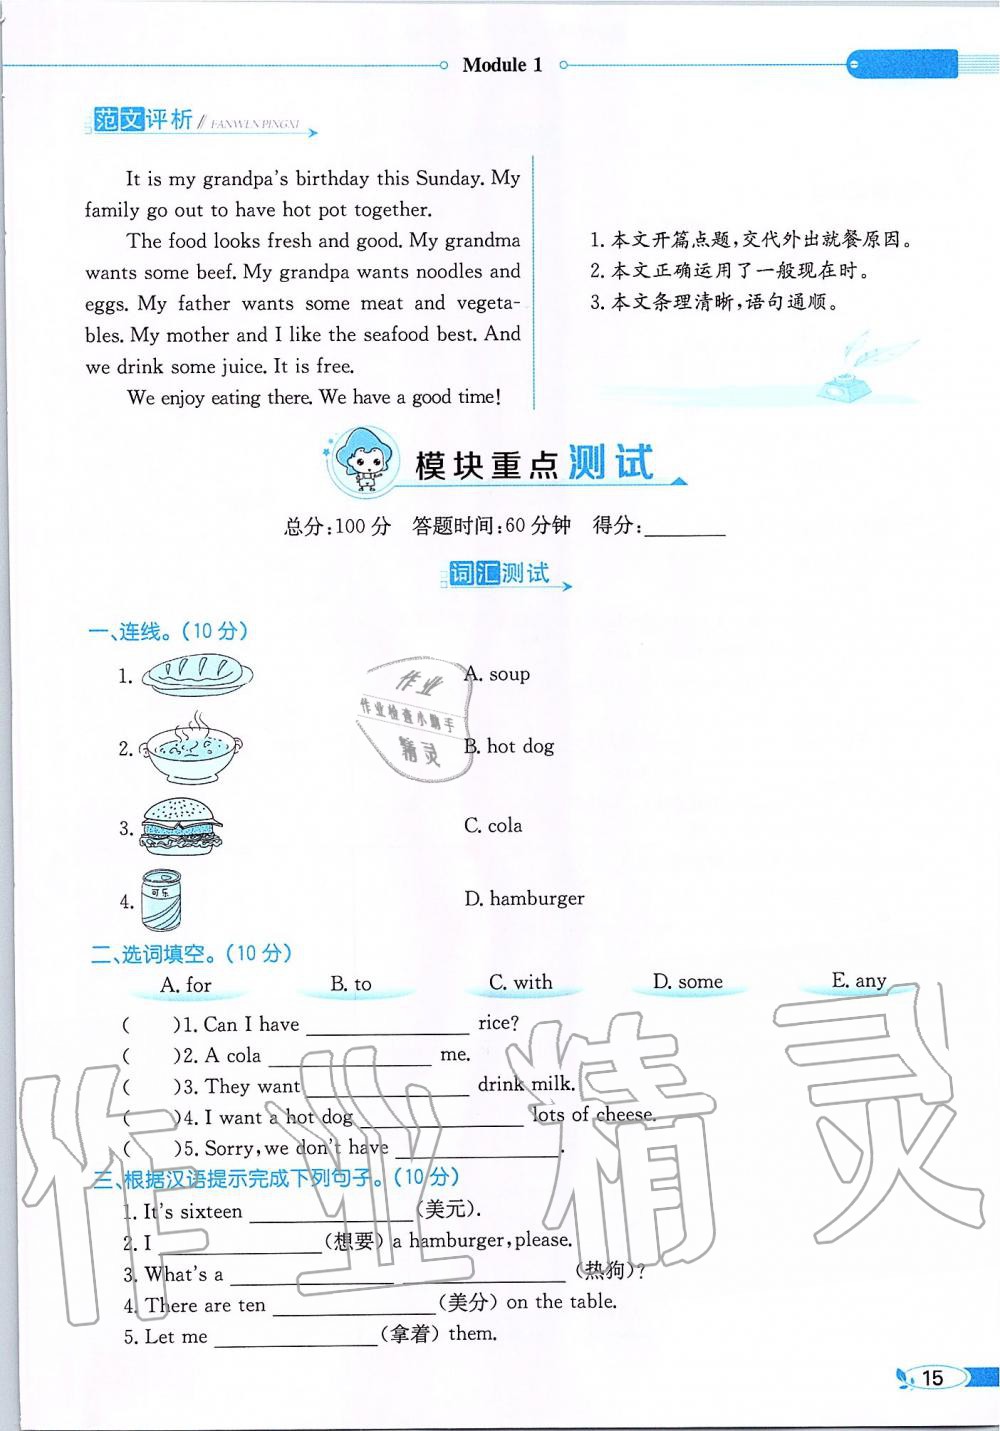 Module 1
范文评析 // FANWEN PINGXI
It is my grandpa's birthday this Sunday. My
family go out to have hot pot together.
The food looks fresh and good. My grandma
wants some beef. My grandpa wants noodles and
eggs. My father wants some meat and vegeta-
bles. My mother and I like the seafood best. And
we drink some juice. It is free.
We enjoy eating there. We have a good time!
1. 本文开篇点题,交代外出就餐原因。
2. 本文正确运用了一般现在时。
3. 本文条理清晰,语句通顺。
模块重点测试
总分:100分 答题时间:60分钟 得分:________
词汇测试
一、连线。(10分)
1. A. soup
2. B. hot dog
3. C. cola
可乐
4. D. hamburger
作业
作业检查小助手
精灵
二、选词填空。(10分)
A. for B. to C. with D. some E. any
( )1. Can I have ________________ rice?
( )2. A cola ________________ me.
( )3. They want ________________ drink milk.
( )4. I want a hot dog ________________ lots of cheese.
( )5. Sorry, we don't have ________________.
三、根据汉语提示完成下列句子。(10分)
1. It's sixteen ________________(美元).
2. I ________________(想要) a hamburger, please.
3. What's a ________________ ________________(热狗)?
4. There are ten ________________(美分) on the table.
5. Let me ________________(拿着) them.
作业精灵
15